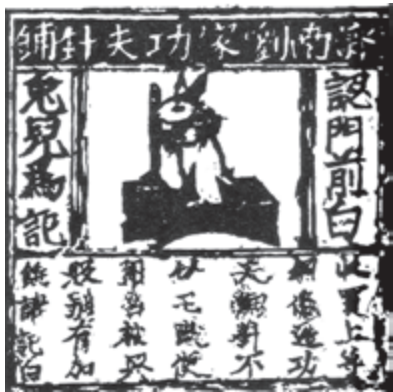 濟南劉家功夫針鋪
認門前白
兔兒爲記
收買上等
鋼條造功
夫細針不
使
用
販別有加
饒請記白